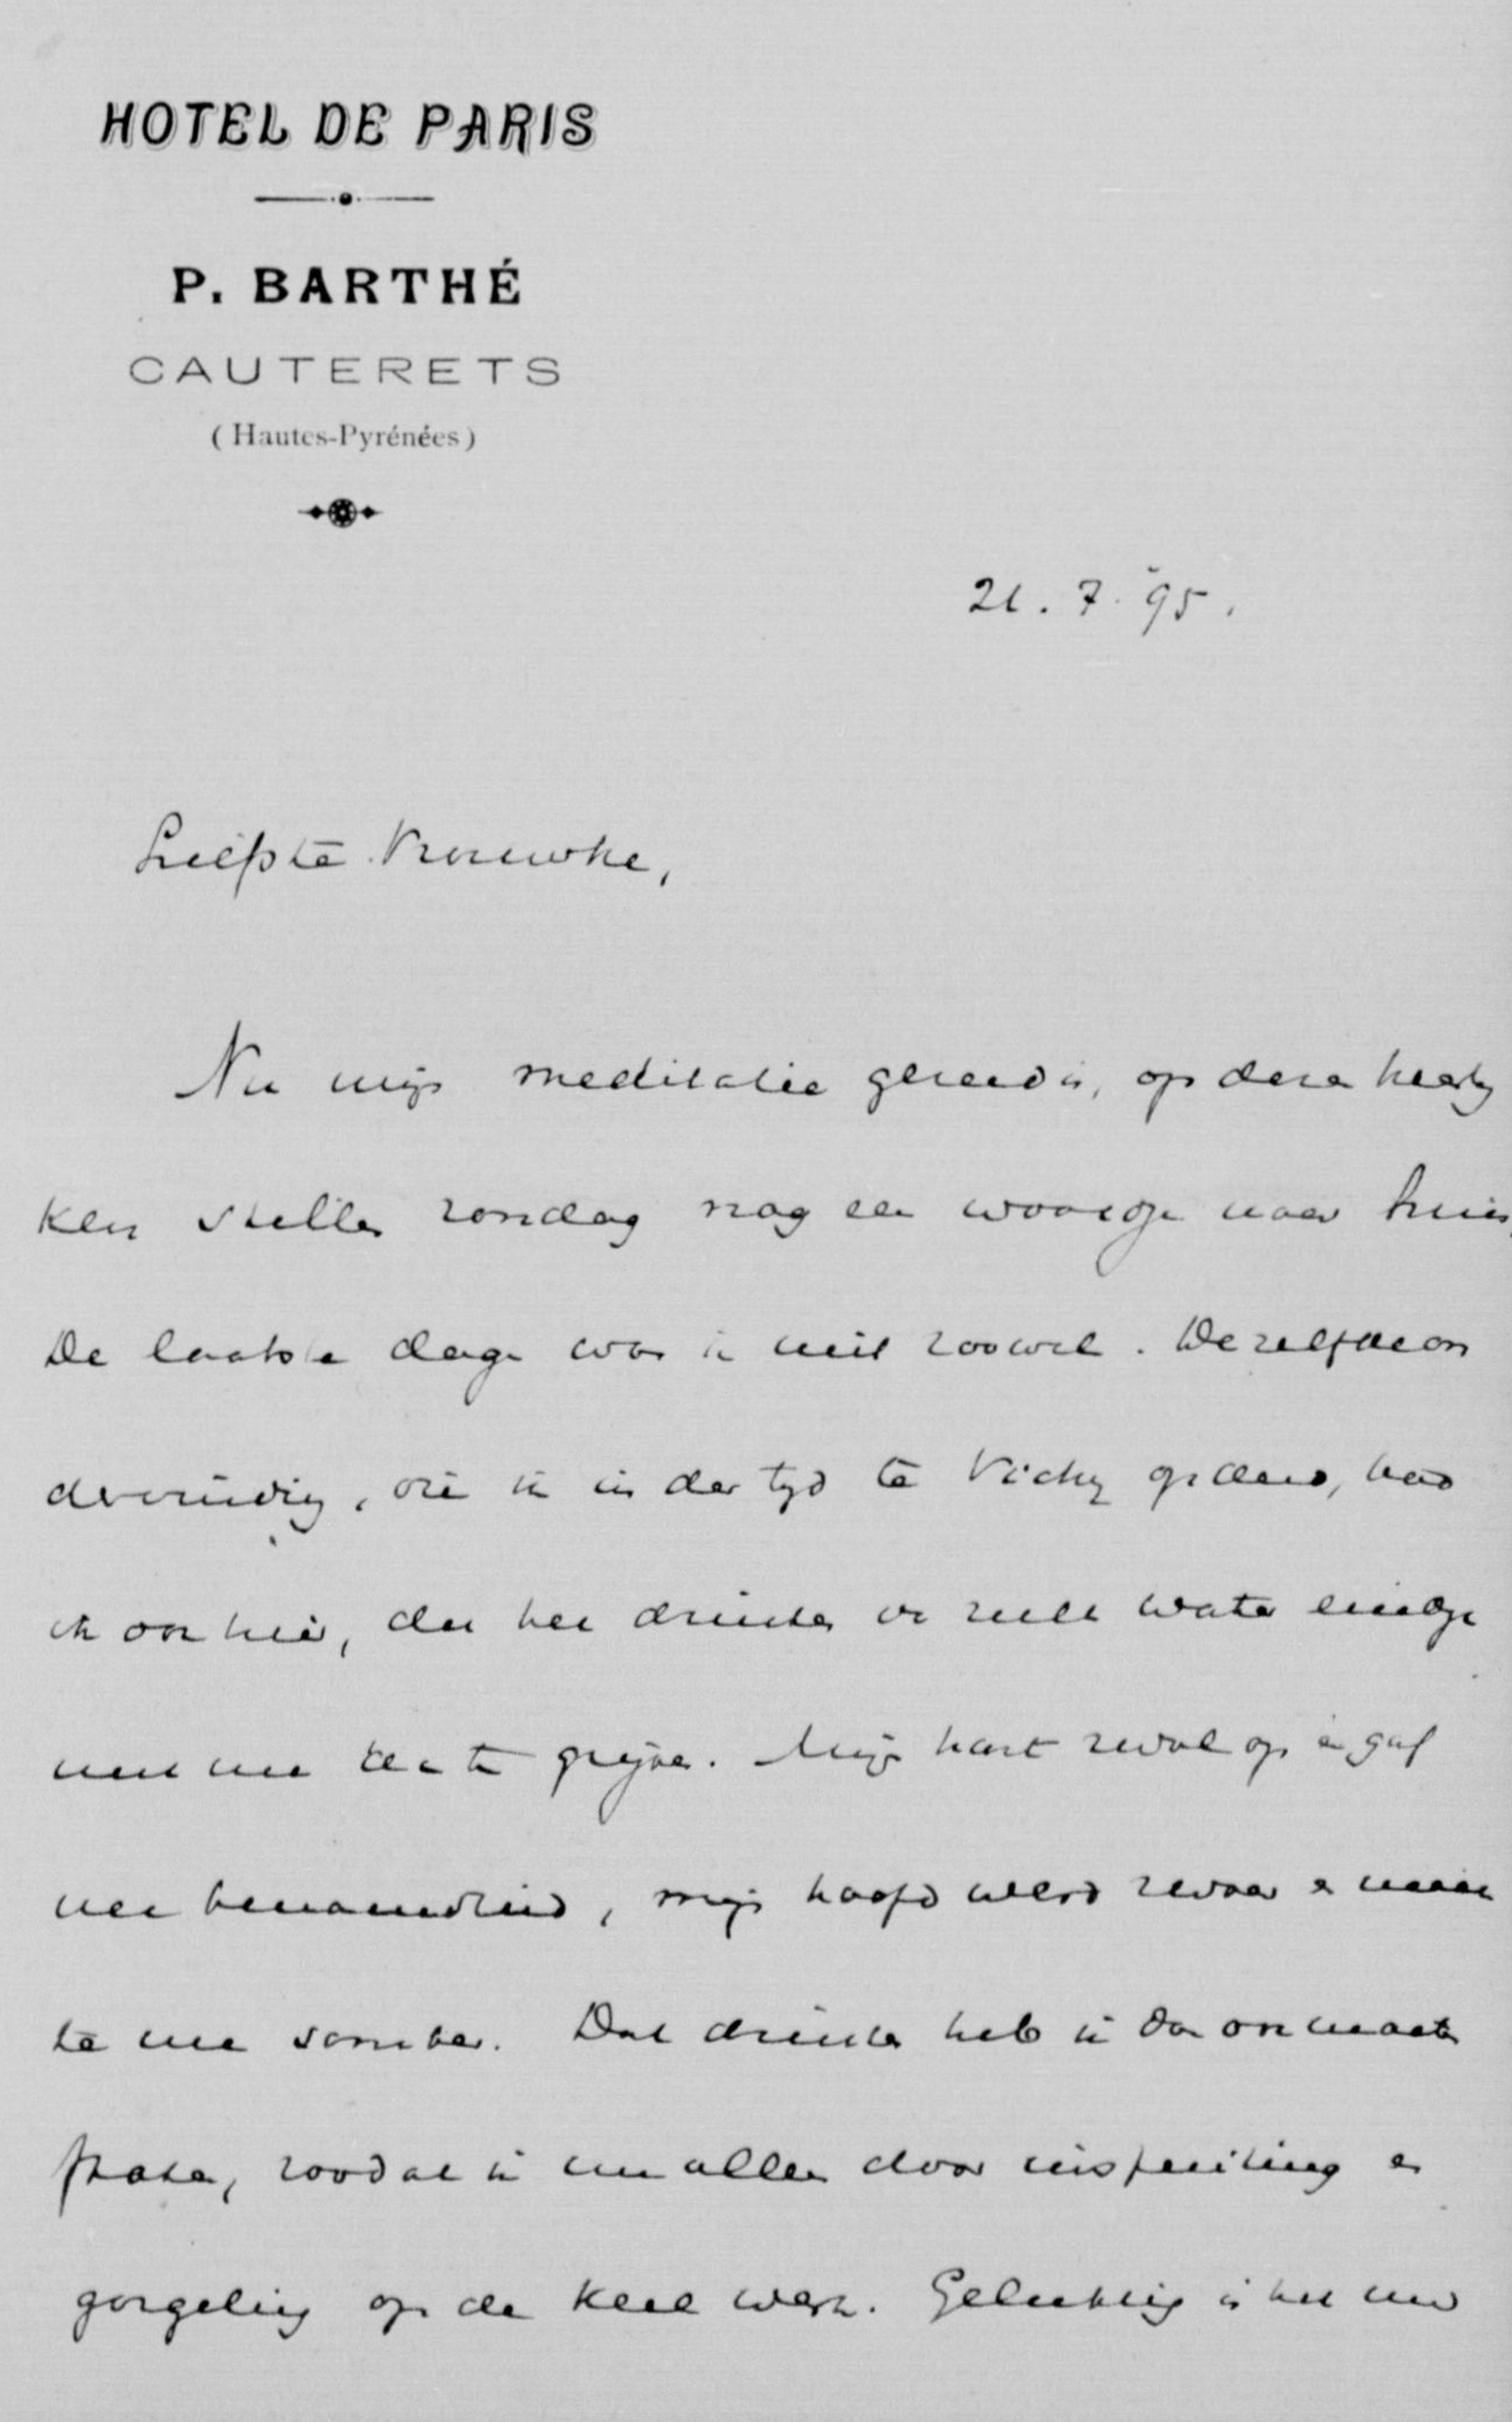 HOTEL DE PARIS
P. BARTHÉ
CAUTERETS
(Hautes-Pyrénées)
21. 7. 95.
Liefste Vrouwke,
Nu mijn meditatie gereed is, op deze heerlij
ken stillen zondag nog een woordje naar huis.
De laatste dagen was ik niet zoo wel. Dezelfde on
dervinding, die ik in der tijd te Vichy opdeed, had
ik ook hier, dat het drinken van zulk water eindigt
met me aan te grijpen. Mijn hart zwol op en gaf
me benauwdheid, mijn hoofd werd zwaar en maak
te me somber. Dat drinken heb ik dan ook maar
, zoodat ik nu alleen door inspuiting en
gorgeling op de keel werk. Gelukkig is het nu